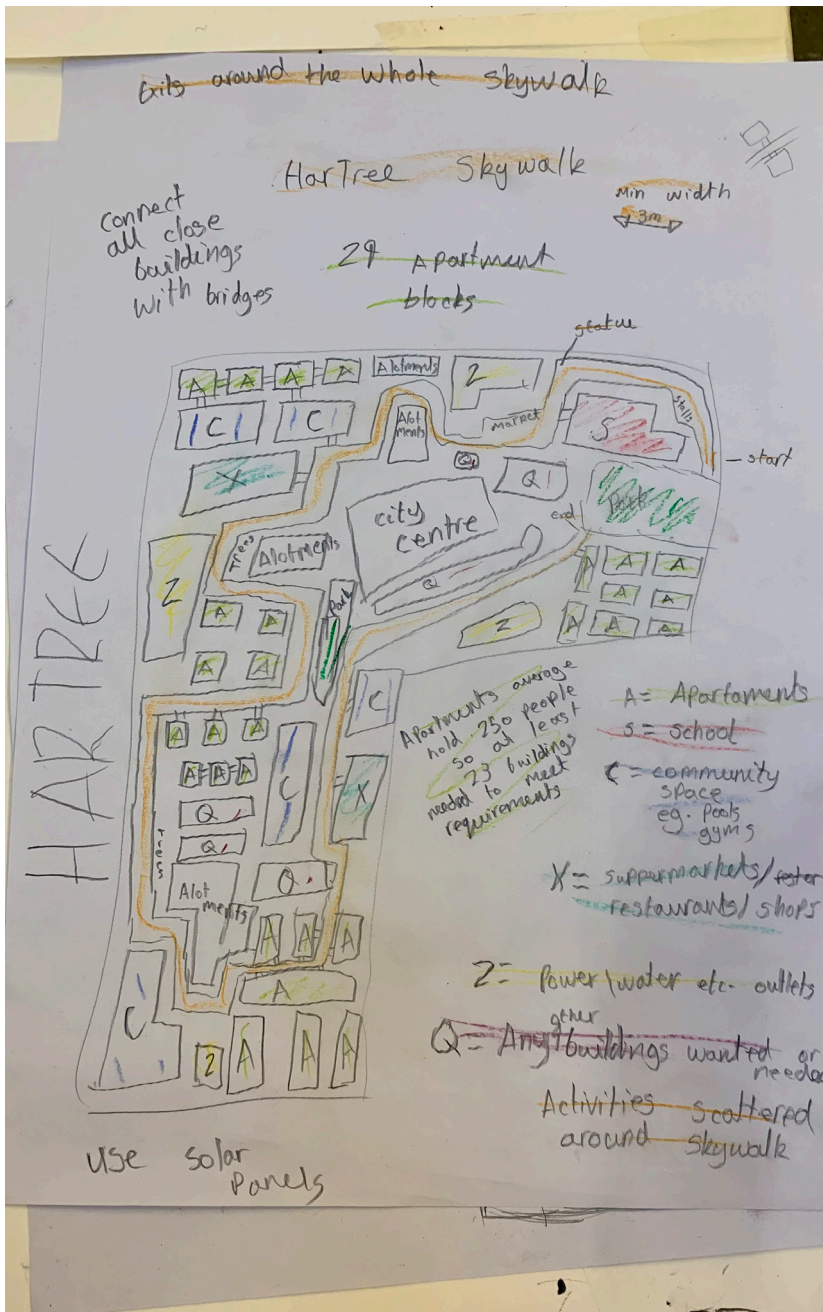 Exits around the whole skywalk
HarTree Skywalk
Min width
3m
connect
all close
buildings
with bridges
29 Apartment
blocks
statue
A A A A
Alotments
Z
C C
Alot
ments
Market
S
stalls
start
X
Q
Q
Park
end
city
centre
Trees
Alotments
Z
Q
A A A
A A
A A A
A A
A A
Park
Z
HARTREE
C
A A A
A A A
C
X
Q
Q
Trees
Alot
ments
Q
A A A
A
C
Z A A A
Apartments average
hold 250 people
so at least
23 buildings
needed to meet
requirements
A = Apartaments
S = School
C = community
space
eg. pools
gyms
X = suppermarkets/
restaurants/ shops
Z = Power/water etc. outlets
Q = Any other buildings wanted or
needed
Activities scattered
around skywalk
use solar
Panels